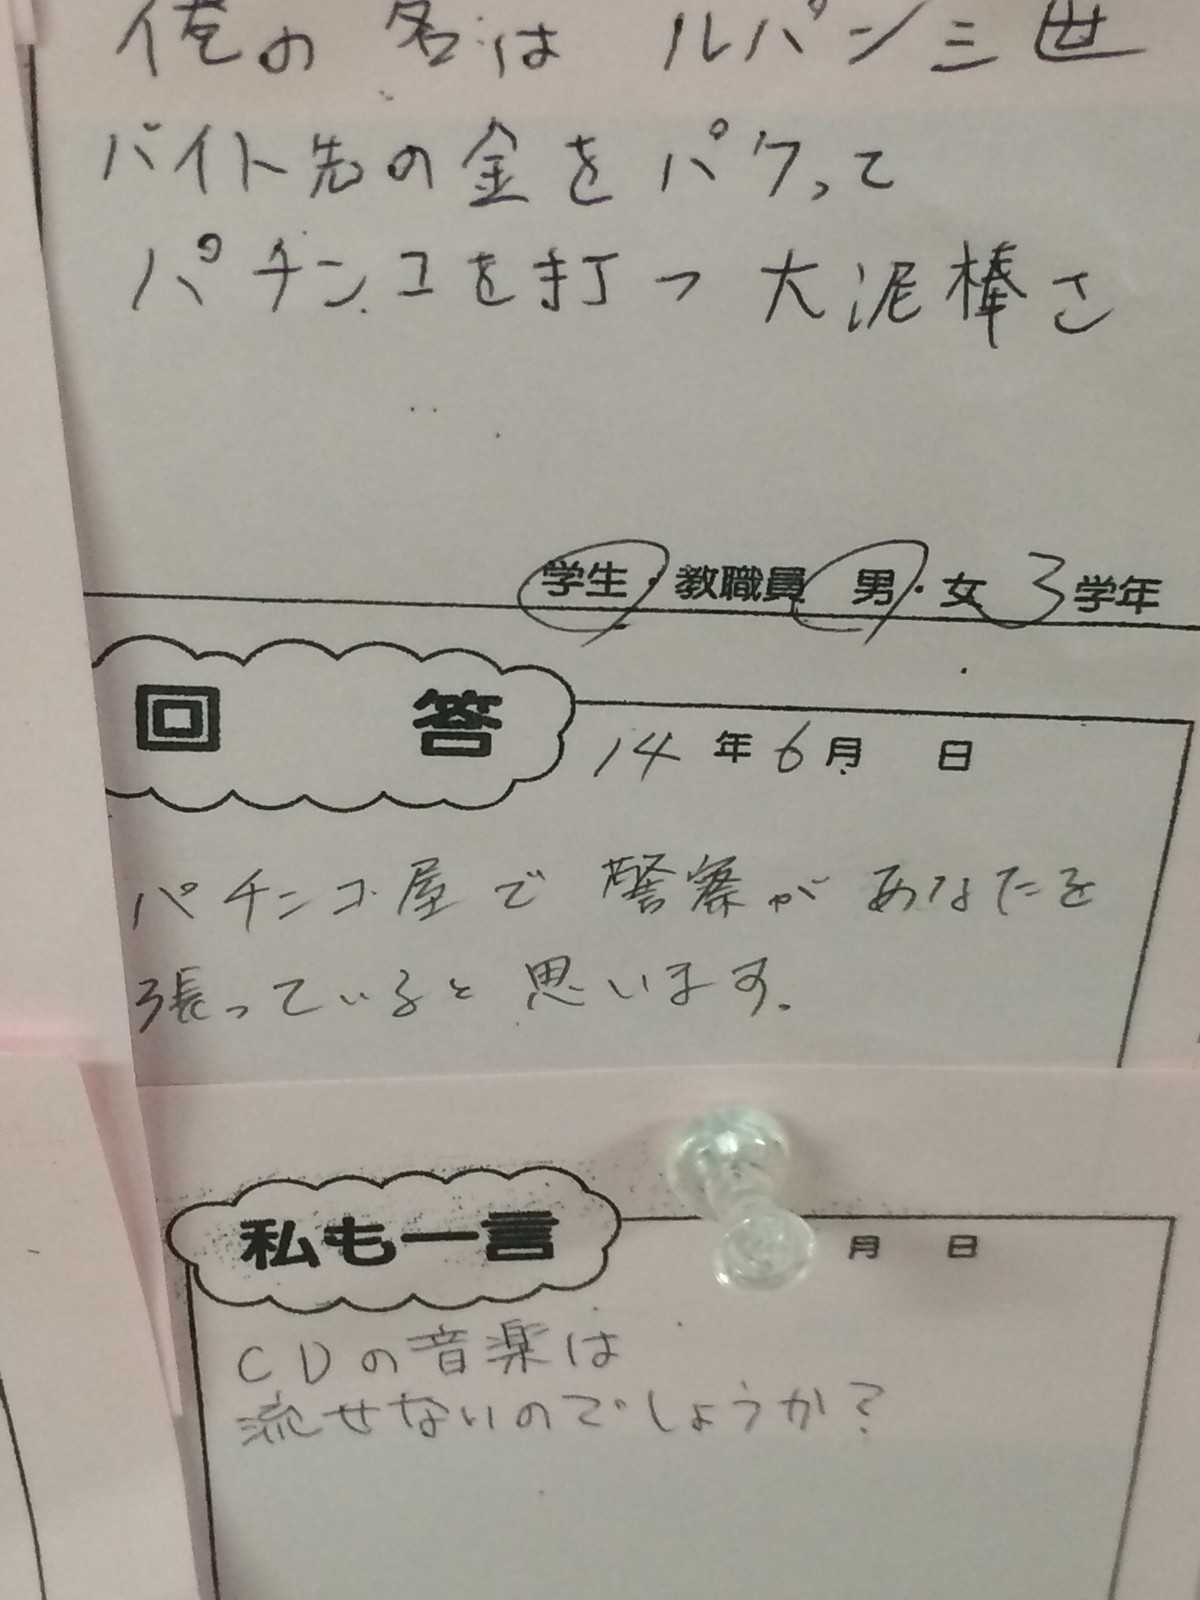 俺の名は ルパン三世
バイト先の金をパクって
パチンコを打つ大泥棒さ
学生・教職員 男・女 3学年
回答
14年6月 日
パチンコ屋で警察があなたを
張っていると思います。
私も一言
月 日
CDの音楽は
流せないのでしょうか?